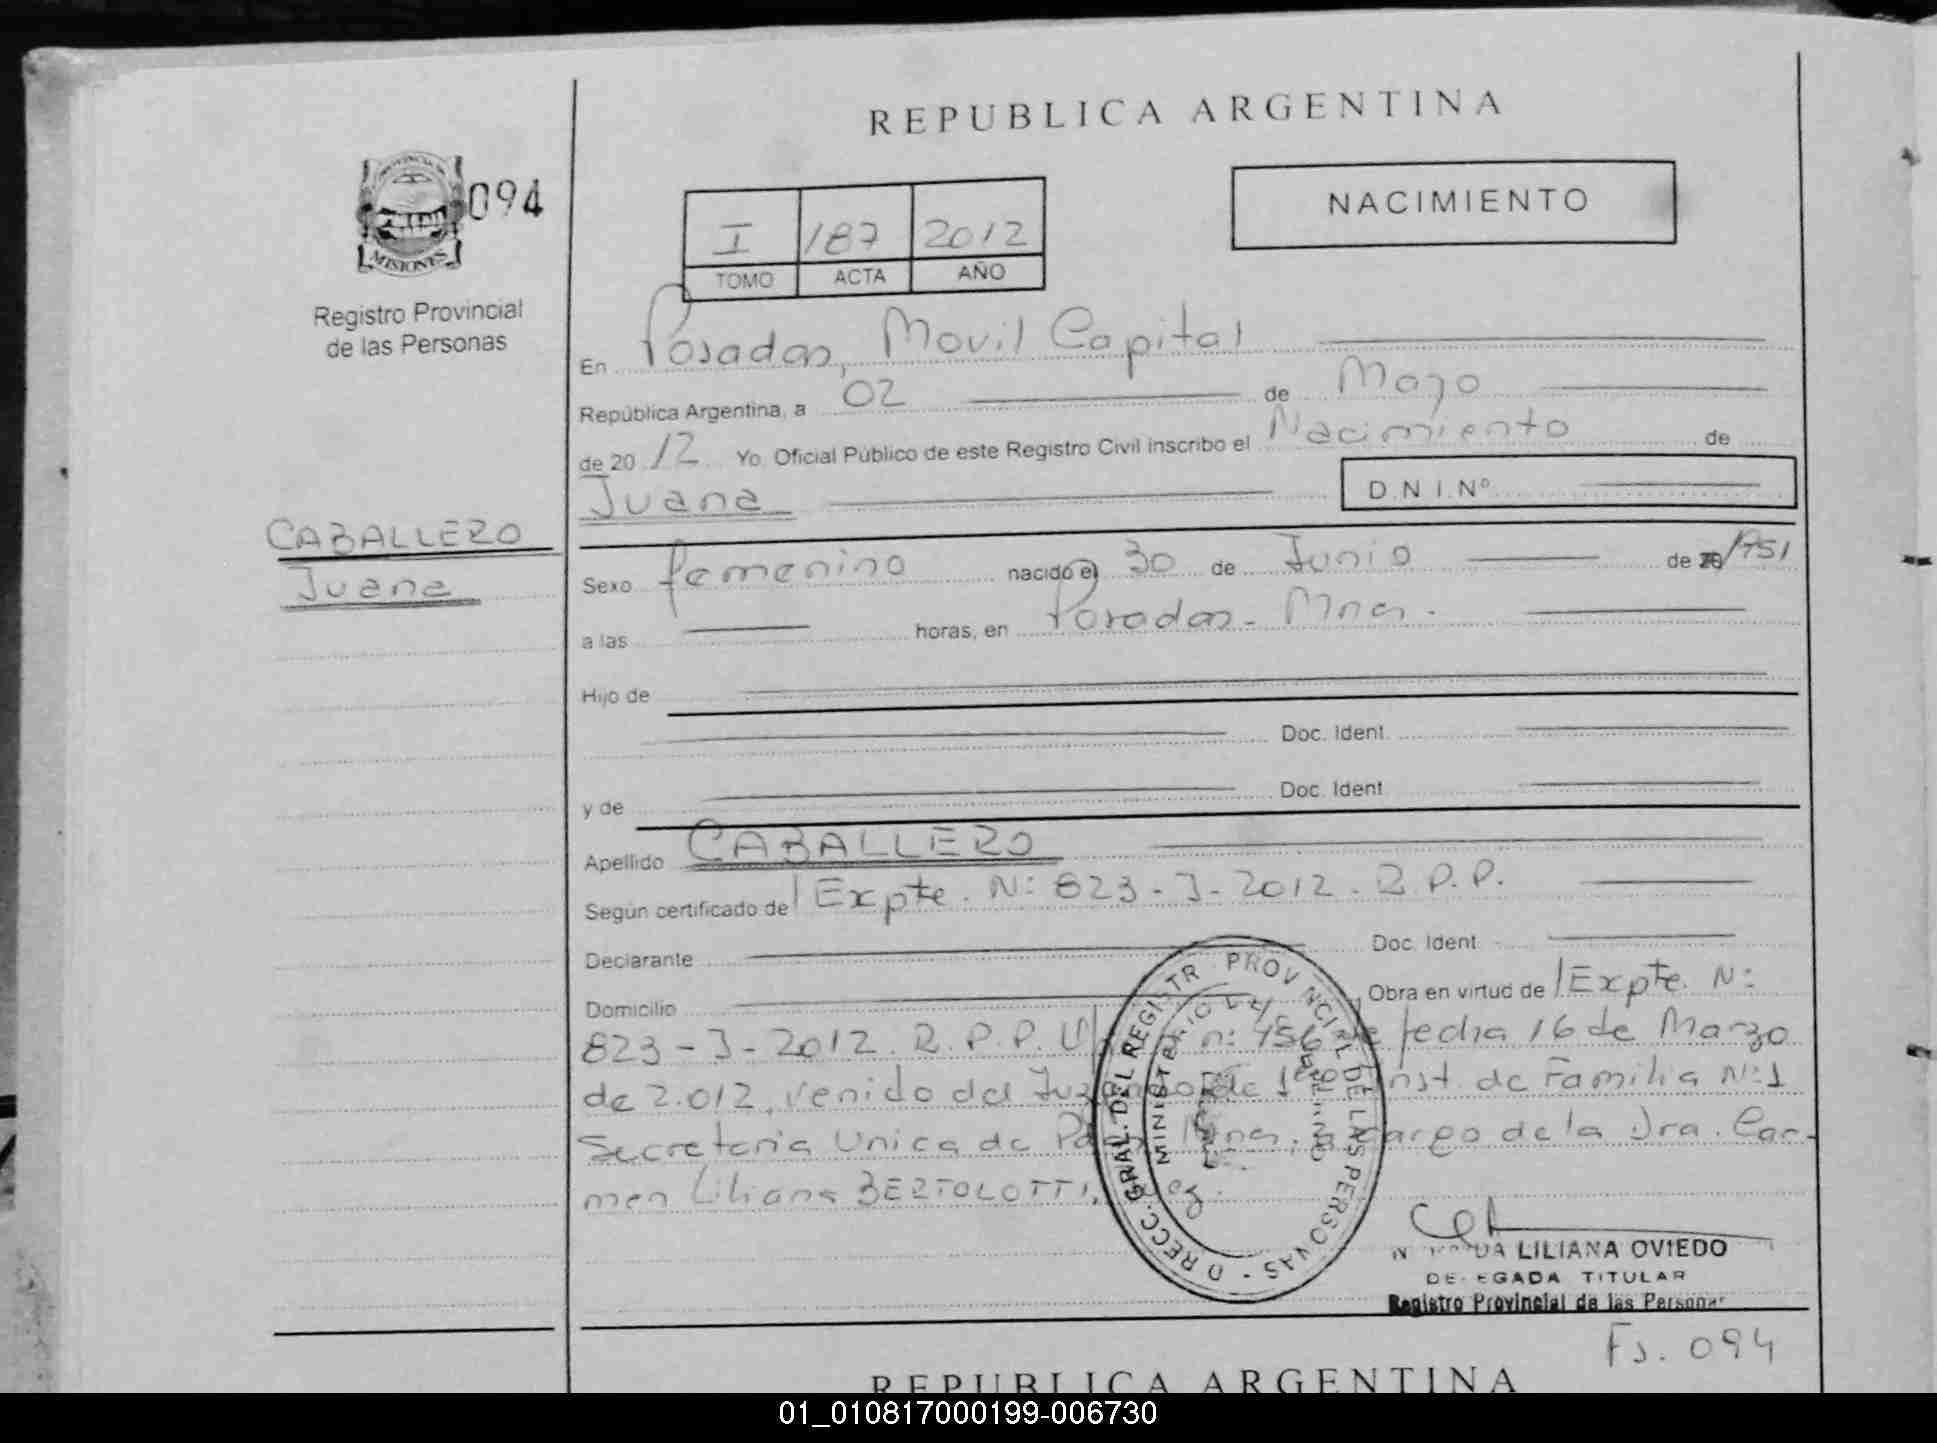 REPUBLICA ARGENTINA
PROVINCIA DE
MISIONES
094
Registro Provincial
de las Personas
I 187 2012
TOMO ACTA AÑO
NACIMIENTO
En Posadas, Movil Capital
República Argentina, a 02 de Mayo
de 2012 Yo Oficial Público de este Registro Civil inscribo el Nacimiento de
Juana D.N.I.Nº
CABALLERO
Juana
Sexo femenino nacido el 30 de Junio de 1951
a las horas, en Posadas - Mnes.
Hijo de
Doc. Ident.
y de Doc. Ident.
Apellido CABALLERO
Según certificado de Expte. N: 823-J-2012. R.P.P.
Declarante Doc. Ident.
Domicilio , Obra en virtud de Expte. N:
823-J-2012. R.P.P. n: 456 de fecha 16 de Marzo
de 2.012, venido del Juzgado de 1º Inst. de Familia N:1
Secretaria Unica de Mnes, a cargo de la Dra. Car-
men Liliana BERTOLOTTI,
DIRECC. GRAL. DEL REGISTR PROVINCIAL DE LAS PERSONAS
MINISTERIO DE
LILIANA OVIEDO
DELEGADA TITULAR
Registro Provincial de las Personas
Fs. 094
REPUBLICA ARGENTINA
01_010817000199-006730